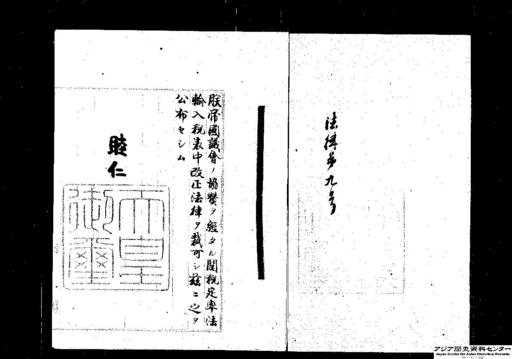 法律第九号
朕帝國議會ノ協賛ヲ經タル關税定率法
輸入税表中改正法律ヲ裁可シ茲ニ之ヲ
公布セシム
睦仁
天皇
御璽
アジア歴史資料センター
Japan Center for Asian Historical Records